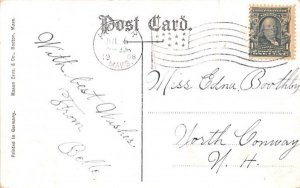 Post Card.
Mason Bros. & Co., Boston, Mass.
Printed in Germany.
MASS.
With best Wishes.
From
Belle.
Miss Edna Boothby
North Conway
N. H.